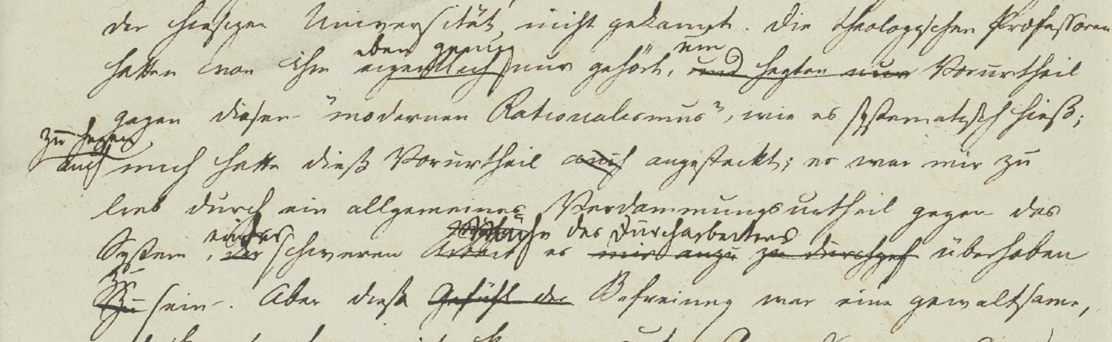 der hiesigen Universität, nicht gekannt. Die theologischen Professoren
eben genug um
hatten von ihm eigentlich nur gehört, und hegten nur Vorurtheil
gegen diesen "modernen Rationalismus", wie es systematisch hieß;
zu hegen
auch mich hatte dieß Vorurtheil auch angesteckt; es war mir zu
lieb durch ein allgemeines Verdammungsurtheil gegen das
des Durcharbeitens
System, der schweren Arbeit es mir zu überhoben
zu
zu sein. Aber diese Gefühl der Befreiung war eine gewaltsame,